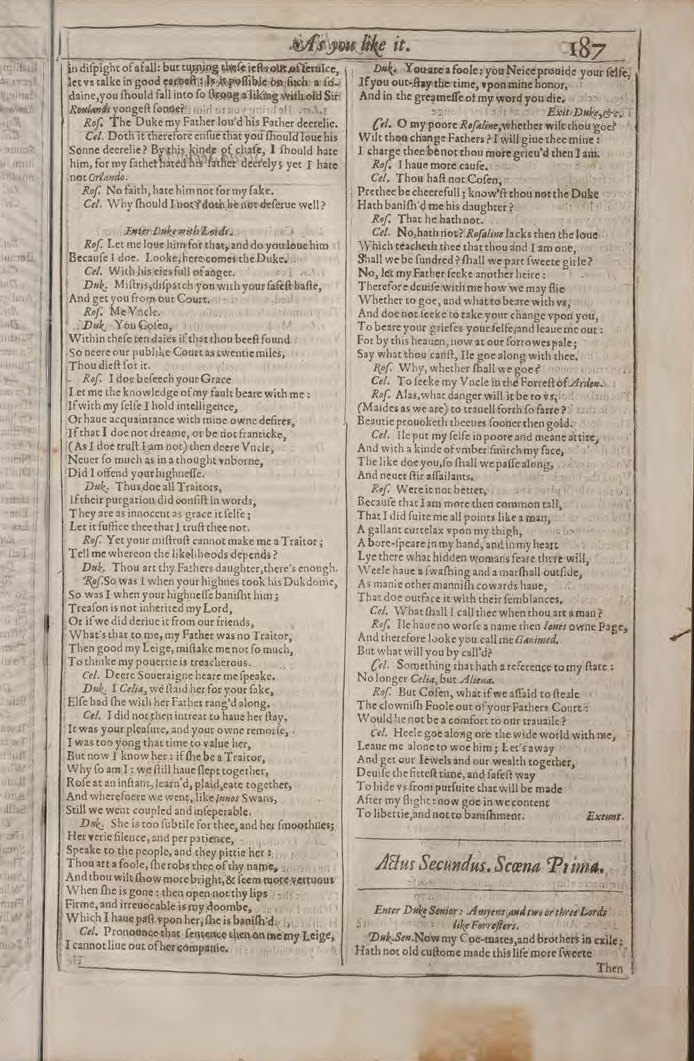 As you like it.
187
in dispight of a fall: but turning these iests out of seruice,
let vs talke in good earnest: Is it possible on such a so-
daine, you should fall into so strong a liking with old Sir
Roulands yongest sonne?
Ros. The Duke my Father lou'd his Father deerelie.
Cel. Doth it therefore ensue that you should loue his
Sonne deerelie? By this kinde of chase, I should hate
him, for my father hated his father deerely; yet I hate
not Orlando.
Ros. No faith, hate him not for my sake.
Cel. Why should I not? doth he not deserue well?
Enter Duke with Lords.
Ros. Let me loue him for that, and do you loue him
Because I doe. Looke, here comes the Duke.
Cel. With his eies full of anger.
Duk. Mistris, dispatch you with your safest haste,
And get you from our Court.
Ros. Me Vncle.
Duk. You Cosen,
Within these ten daies if that thou beest found
So neere our publike Court as twentie miles,
Thou diest for it.
Ros. I doe beseech your Grace
Let me the knowledge of my fault beare with me:
If with my selfe I hold intelligence,
Or haue acquaintance with mine owne desires,
If that I doe not dreame, or be not franticke,
(As I doe trust I am not) then deere Vncle,
Neuer so much as in a thought vnborne,
Did I offend your highnesse.
Duk. Thus doe all Traitors,
If their purgation did consist in words,
They are as innocent as grace it selfe;
Let it suffice thee that I trust thee not.
Ros. Yet your mistrust cannot make me a Traitor;
Tell me whereon the likelihoods depends?
Duk. Thou art thy Fathers daughter, there's enough.
Ros. So was I when your highnes took his Dukdome,
So was I when your highnesse banisht him;
Treason is not inherited my Lord,
Or if we did deriue it from our friends,
What's that to me, my Father was no Traitor,
Then good my Leige, mistake me not so much,
To thinke my pouertie is treacherous.
Cel. Deere Soueraigne heare me speake.
Duk. I Celia, we staid her for your sake,
Else had she with her Father rang'd along.
Cel. I did not then intreat to haue her stay,
It was your pleasure, and your owne remorse,
I was too yong that time to value her,
But now I know her: if she be a Traitor,
Why so am I: we still haue slept together,
Rose at an instant, learn'd, plaid, eate together,
And wheresoere we went, like Iunos Swans,
Still we went coupled and inseperable.
Duk. She is too subtile for thee, and her smoothnes;
Her verie silence, and per patience,
Speake to the people, and they pittie her:
Thou art a foole, she robs thee of thy name,
And thou wilt show more bright, & seem more vertuous
When she is gone: then open not thy lips
Firme, and irreuocable is my doombe,
Which I haue past vpon her, she is banish'd.
Cel. Pronounce that sentence then on me my Leige,
I cannot liue out of her companie.
Duk. You are a foole: you Neice prouide your selfe,
If you out-stay the time, vpon mine honor,
And in the greatnesse of my word you die.
Exit Duke, &c.
Cel. O my poore Rosaline, whether wilt thou goe?
Wilt thou change Fathers? I will giue thee mine:
I charge thee be not thou more grieu'd then I am.
Ros. I haue more cause.
Cel. Thou hast not Cosen,
Prethee be cheerefull; know'st thou not the Duke
Hath banish'd me his daughter?
Ros. That he hath not.
Cel. No, hath not? Rosaline lacks then the loue
Which teacheth thee that thou and I am one,
Shall we be sundred? shall we part sweete girle?
No, let my Father seeke another heire:
Therefore deuise with me how we may flie
Whether to goe, and what to beare with vs,
And doe not seeke to take your change vpon you,
To beare your griefes your selfe, and leaue me out:
For by this heauen, now at our sorrowes pale;
Say what thou canst, Ile goe along with thee.
Ros. Why, whether shall we goe?
Cel. To seeke my Vncle in the Forrest of Arden.
Ros. Alas, what danger will it be to vs,
(Maides as we are) to trauell forth so farre?
Beautie prouoketh theeues sooner then gold.
Cel. Ile put my selfe in poore and meane attire,
And with a kinde of vmber smirch my face,
The like doe you, so shall we passe along,
And neuer stir assailants.
Ros. Were it not better,
Because that I am more then common tall,
That I did suite me all points like a man,
A gallant curtelax vpon my thigh,
A bore-speare in my hand, and in my heart
Lye there what hidden womans feare there will,
Weele haue a swashing and a marshall outside,
As manie other mannish cowards haue,
That doe outface it with their semblances.
Cel. What shall I call thee when thou art a man?
Ros. Ile haue no worse a name then Ioues owne Page,
And therefore looke you call me Ganimed.
But what will you by call'd?
Cel. Something that hath a reference to my state:
No longer Celia, but Aliena.
Ros. But Cosen, what if we assaid to steale
The clownish Foole out of your Fathers Court:
Would he not be a comfort to our trauaile?
Cel. Heele goe along ore the wide world with me,
Leaue me alone to woe him; Let's away
And get our Iewels and our wealth together,
Deuise the fittest time, and safest way
To hide vs from pursuite that will be made
After my flight: now goe in we content
To libertie, and not to banishment. Exeunt.
Actus Secundus. Scœna Prima.
Enter Duke Senior: Amyens, and two or three Lords
like Forresters.
Duk. Sen. Now my Coe-mates, and brothers in exile:
Hath not old custome made this life more sweete
Then